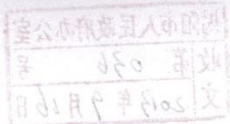 阳市人民政府办公室
收 第 036 号
文 2013年9月26日